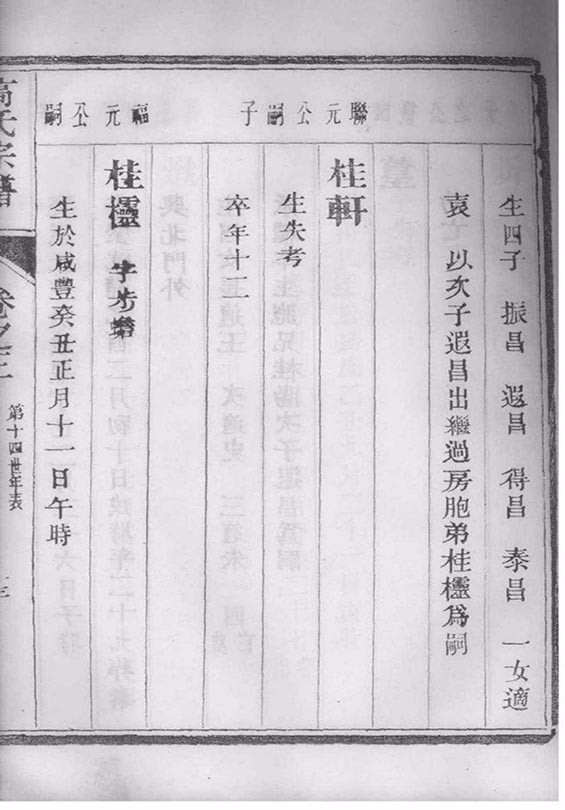 生四子 振昌 遐昌 得昌 泰昌 一女適
袁 以次子遐昌出繼過房胞弟桂櫺爲嗣
聯元公嗣子
桂軒
生失考
卒年十二
福元公嗣
桂櫺 字步蟾
生於咸豐癸丑正月十一日午時
高氏宗譜
卷之
第十四世年表